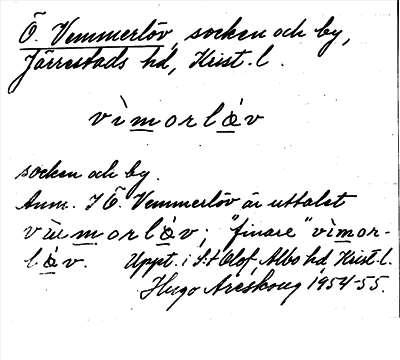 Ö. Vemmerlöv, socken och by,
Järrestads hd, Krist. l.
vìmorlǿv
socken och by.
Anm. I Ö. Vemmerlöv är uttalet
vìumorlǿv; "finare" vìmor-
lǿv. Uppt. i S:t Olof, Albo hd, Krist. l.
Hugo Areskoug 1954-55.